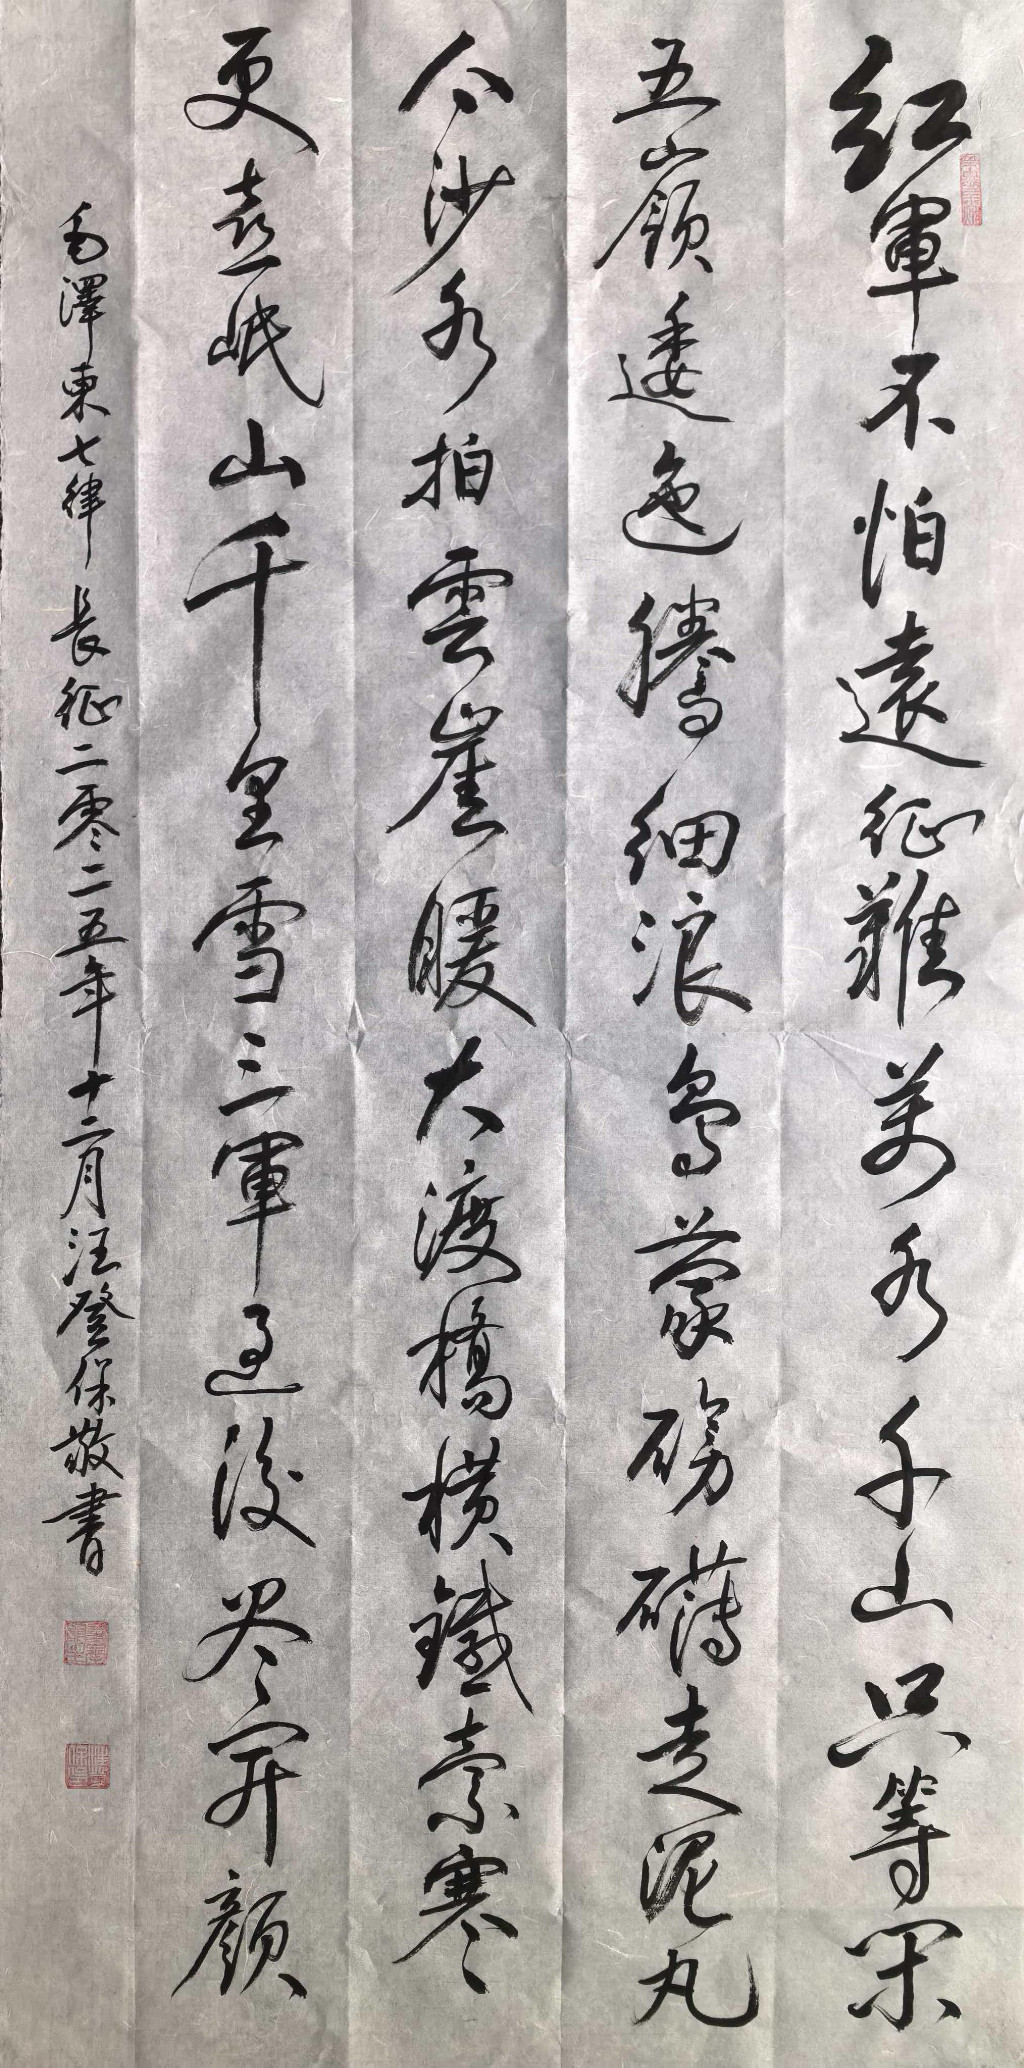 紅軍不怕遠征難萬水千山只等閑
五嶺逶迤騰細浪烏蒙磅礴走泥丸
金沙水拍雲崖暖大渡橋橫鐵索寒
更喜岷山千里雪三軍過後尽開顏
毛澤東七律 長征二零二五年十二月汪登保敬書